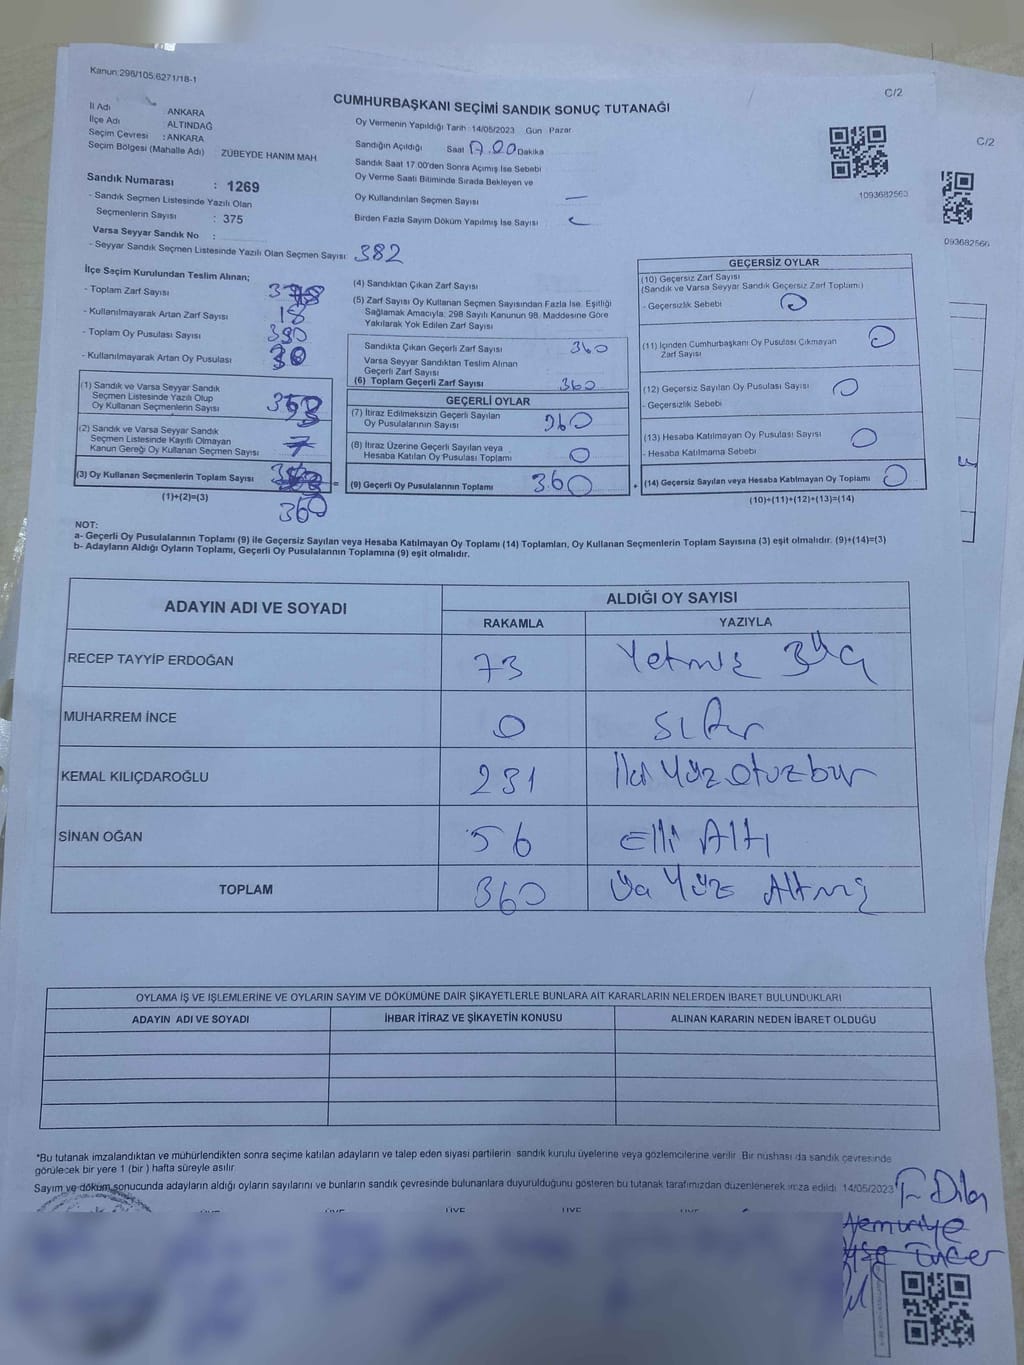 Kanun:298/105;6271/18-1
C/2
CUMHURBAŞKANI SEÇİMİ SANDIK SONUÇ TUTANAĞI
İl Adı ANKARA
İlçe Adı : ALTINDAĞ
Seçim Çevresi : ANKARA
Seçim Bölgesi (Mahalle Adı) : ZÜBEYDE HANIM MAH.
Oy Vermenin Yapıldığı Tarih : 14/05/2023 Gün : Pazar
Sandığın Açıldığı Saat 17.00 Dakika
Sandık Saat 17.00'den Sonra Açımış İse Sebebi
Oy Verme Saati Bitiminde Sırada Bekleyen ve
Oy Kullandırılan Seçmen Sayısı —
Birden Fazla Sayım Döküm Yapılmış İse Sayısı
1093682563
C/2
093682566
Sandık Numarası : 1269
- Sandık Seçmen Listesinde Yazılı Olan
Seçmenlerin Sayısı : 375
Varsa Seyyar Sandık No :
- Seyyar Sandık Seçmen Listesinde Yazılı Olan Seçmen Sayısı:
382
İlçe Seçim Kurulundan Teslim Alınan;
- Toplam Zarf Sayısı
- Kullanılmayarak Artan Zarf Sayısı 18
- Toplam Oy Pusulası Sayısı 390
- Kullanılmayarak Artan Oy Pusulası 30
(1) Sandık ve Varsa Seyyar Sandık
Seçmen Listesinde Yazılı Olup
Oy Kullanan Seçmenlerin Sayısı 353
(2) Sandık ve Varsa Seyyar Sandık
Seçmen Listesinde Kayıtlı Olmayan
Kanun Gereği Oy Kullanan Seçmen Sayısı 7
(3) Oy Kullanan Seçmenlerin Toplam Sayısı =
(1)+(2)=(3)
360
(4) Sandıktan Çıkan Zarf Sayısı
(5) Zarf Sayısı Oy Kullanan Seçmen Sayısından Fazla İse, Eşitliği
Sağlamak Amacıyla; 298 Sayılı Kanunun 98. Maddesine Göre
Yakılarak Yok Edilen Zarf Sayısı
Sandıkta Çıkan Geçerli Zarf Sayısı 360
Varsa Seyyar Sandıktan Teslim Alınan
Geçerli Zarf Sayısı
(6) Toplam Geçerli Zarf Sayısı 360
GEÇERLİ OYLAR
(7) İtiraz Edilmeksizin Geçerli Sayılan
Oy Pusulalarının Sayısı 360
(8) İtiraz Üzerine Geçerli Sayılan veya
Hesaba Katılan Oy Pusulası Toplamı 0
(9) Geçerli Oy Pusulalarının Toplamı 360 +
GEÇERSİZ OYLAR
(10) Geçersiz Zarf Sayısı
(Sandık ve Varsa Seyyar Sandık Geçersiz Zarf Toplamı)
- Geçersizlik Sebebi 0
(11) İçinden Cumhurbaşkanı Oy Pusulası Çıkmayan
Zarf Sayısı 0
(12) Geçersiz Sayılan Oy Pusulası Sayısı 0
- Geçersizlik Sebebi
(13) Hesaba Katılmayan Oy Pusulası Sayısı 0
- Hesaba Katılmama Sebebi
(14) Geçersiz Sayılan veya Hesaba Katılmayan Oy Toplamı 0
(10)+(11)+(12)+(13)=(14)
NOT:
a- Geçerli Oy Pusulalarının Toplamı (9) ile Geçersiz Sayılan veya Hesaba Katılmayan Oy Toplamı (14) Toplamları, Oy Kullanan Seçmenlerin Toplam Sayısına (3) eşit olmalıdır. (9)+(14)=(3)
b- Adayların Aldığı Oyların Toplamı, Geçerli Oy Pusulalarının Toplamına (9) eşit olmalıdır.
ADAYIN ADI VE SOYADI ALDIĞI OY SAYISI
RAKAMLA YAZIYLA
RECEP TAYYİP ERDOĞAN 73 Yetmiş üç
MUHARREM İNCE 0 sıfır
KEMAL KILIÇDAROĞLU 231 İki Yüz otuzbir
SİNAN OĞAN 56 Elli Altı
TOPLAM 360 Üç Yüz Altmış
OYLAMA İŞ VE İŞLEMLERİNE VE OYLARIN SAYIM VE DÖKÜMÜNE DAİR ŞİKAYETLERLE BUNLARA AİT KARARLARIN NELERDEN İBARET BULUNDUKLARI
ADAYIN ADI VE SOYADI İHBAR İTİRAZ VE ŞİKAYETİN KONUSU ALINAN KARARIN NEDEN İBARET OLDUĞU
*Bu tutanak imzalandıktan ve mühürlendikten sonra seçime katılan adayların ve talep eden siyasi partilerin sandık kurulu üyelerine veya gözlemcilerine verilir. Bir nüshası da sandık çevresinde
görülecek bir yere 1 (bir ) hafta süreyle asılır.
Sayım ve döküm sonucunda adayların aldığı oyların sayılarını ve bunların sandık çevresinde bulunanlara duyurulduğunu gösteren bu tutanak tarafımızdan düzenlenerek imza edildi. 14/05/2023